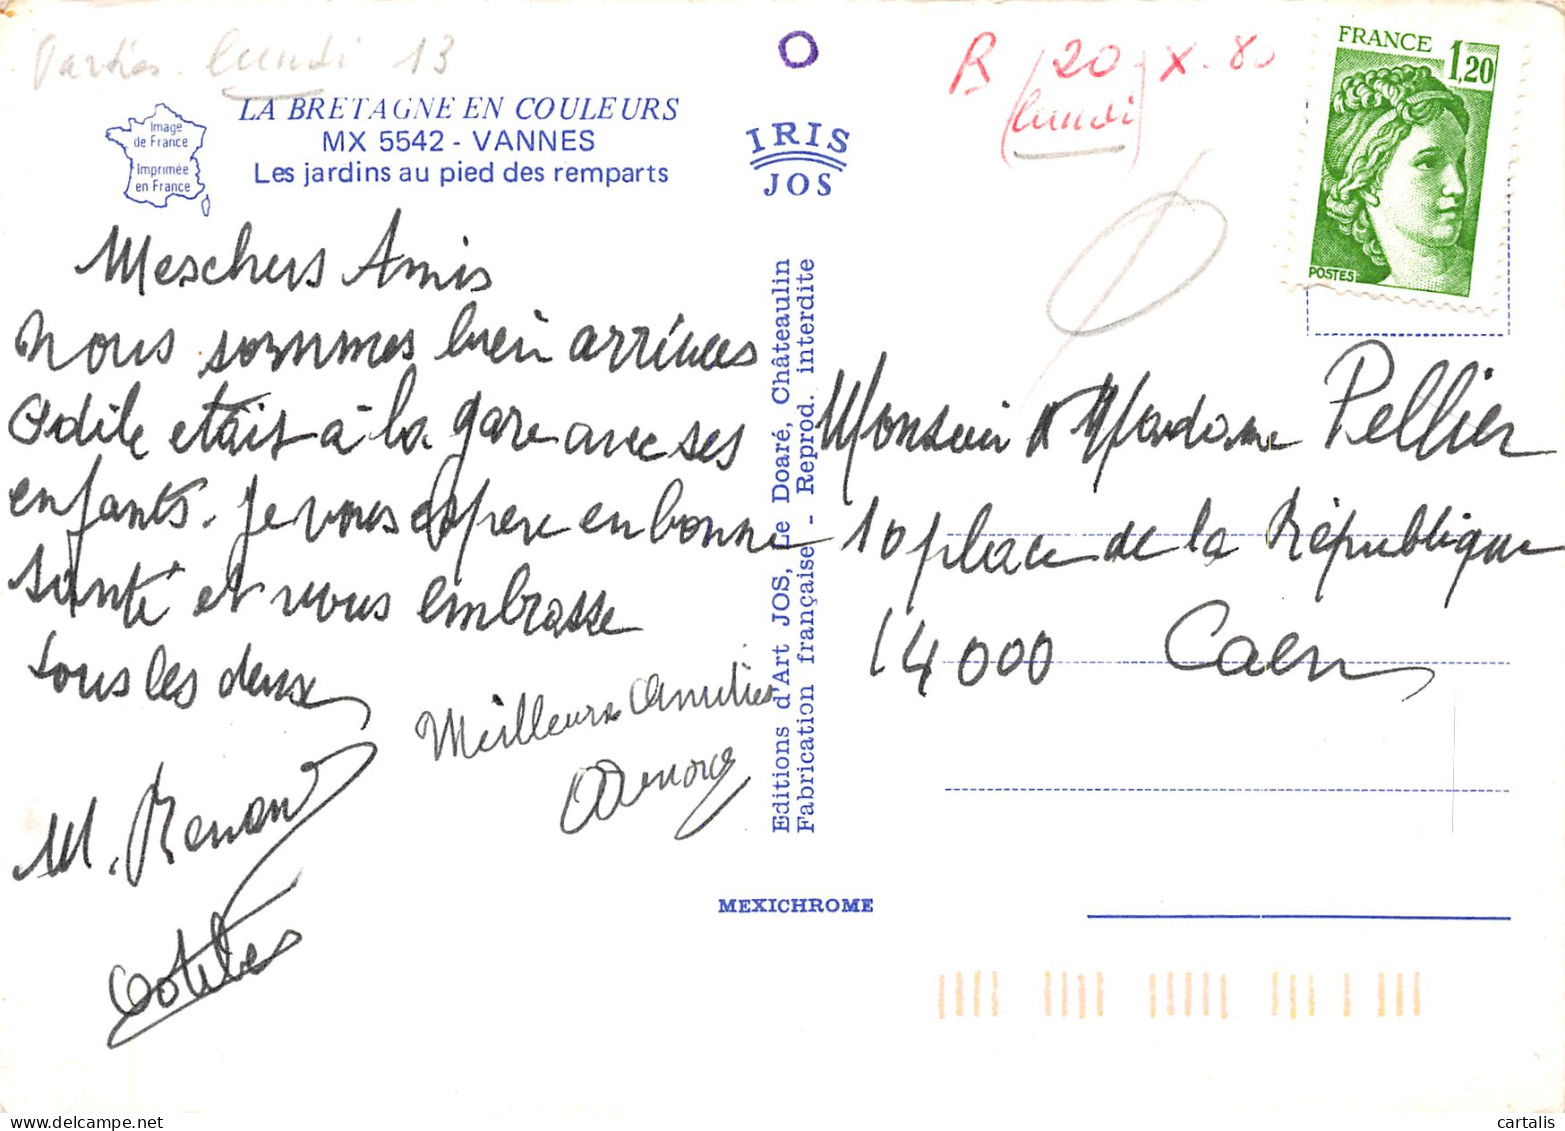 Parties lundi 13
LA BRETAGNE EN COULEURS
MX 5542 - VANNES
Les jardins au pied des remparts
Image
de France
Imprimée
en France
IRIS
JOS
R (20 X. 80
(lundi)
FRANCE
1,20
POSTES
Mes chers Amis
nous sommes bien arrivées
Odile etait à la gare avec ses
enfants. Je vous espere en bonne
santé et vous embrasse
tous les deux
M. Renand
Odile
Meilleures Amitiés
Editions d'Art JOS, Le Doaré, Châteaulin
Fabrication française - Reprod. interdite
MEXICHROME
Monsieur & Madame Pellier
10 place de la République
14000 Caen
www.cartalis.com
cartalis